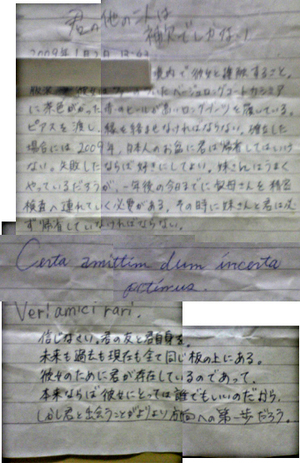 君の他の二人は
補欠でしかない!
2009年1月2日
境内で彼女と接触すること。
ベージュのロングコートカシミア
に茶色がかった青のヒールが高いロングブーツを履いている。
ピアスを渡し、縁を結ばなければならない。
場合には2009年、日本人のお盆に君は帰省してはいけ
ない。失敗したならば好きにしてよい。妹さんはうまく
やっているだろうが、一年後の今日までに叔母さんを精密
検査へ連れていく必要がある。その時に妹さんと君は必
ず帰省していなければならない。
Certa amittim dum incerta
petimus.
Veri amici rari.
信じなさい、君の友と君自身を。
未来も過去も現在も全て同じ板の上にある。
彼女のために君が存在しているのであって、
本来ならば彼女にとっては誰でもいいのだから。
しかし君と出会うことがより方向への第一歩だろう。